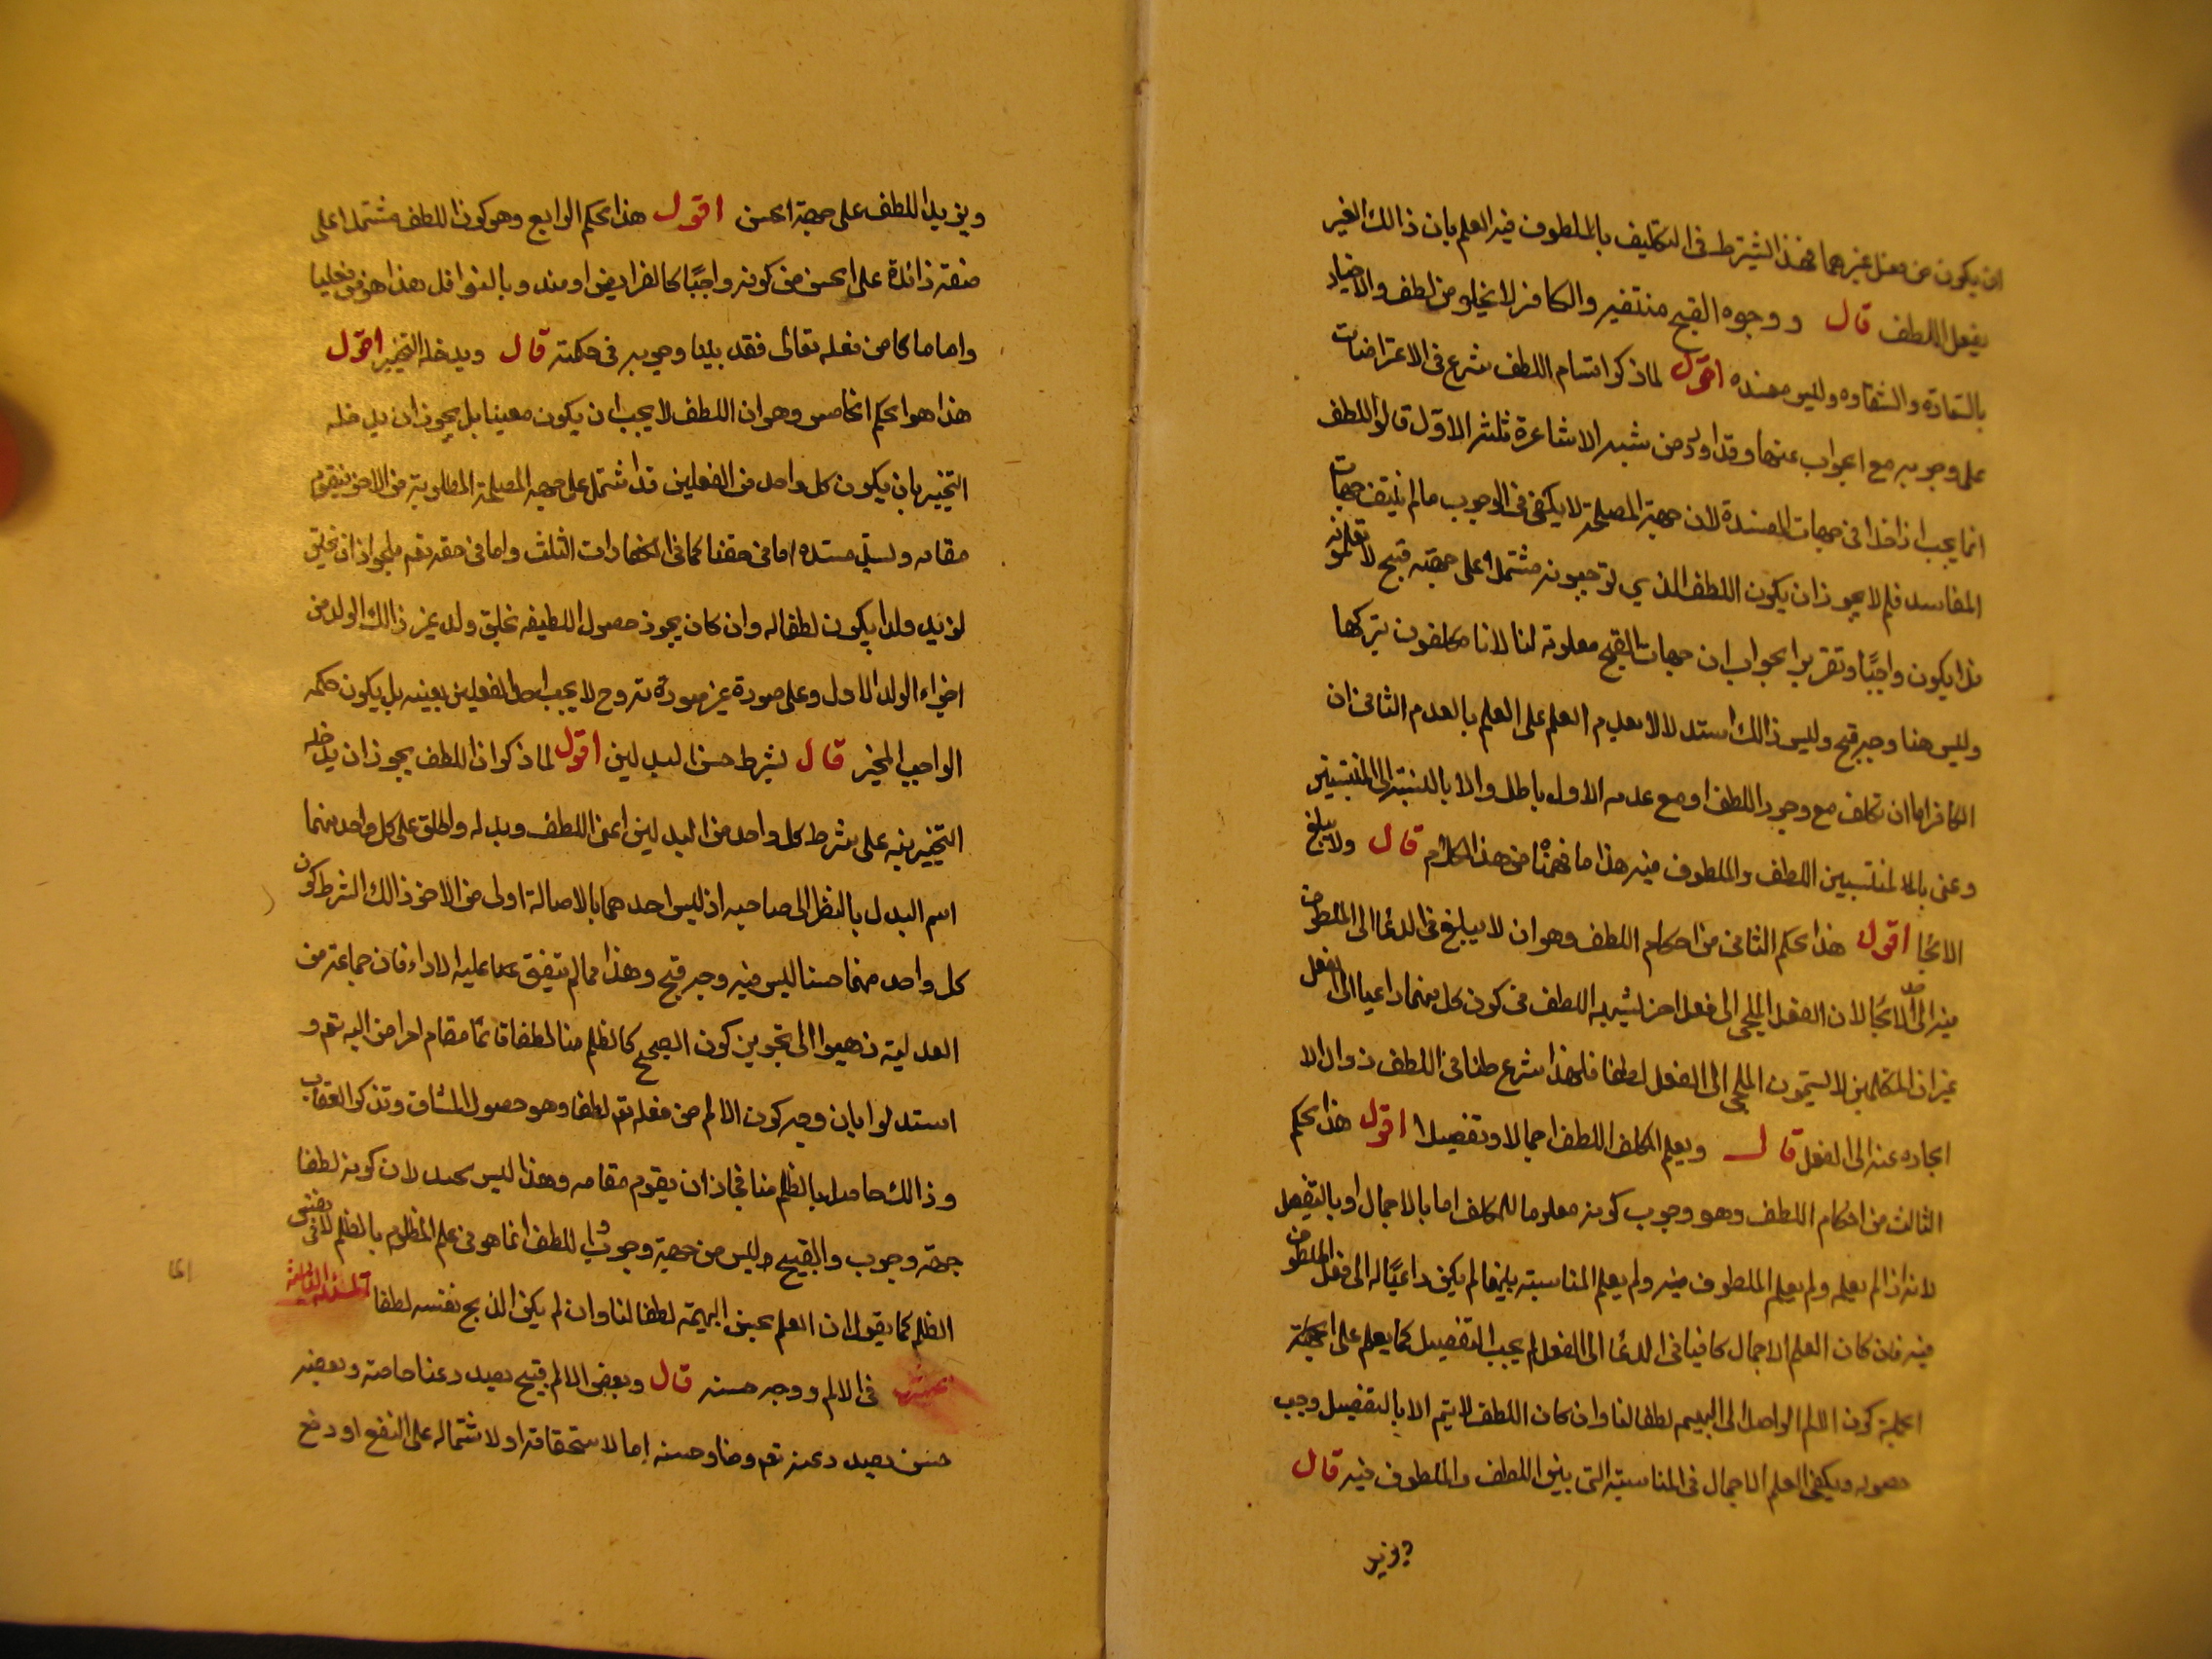 ان يكون من فعل غيرهما فهذا يشترط فى التكليف بالملطوف فيه العلم بان ذالك الغير
يفعل اللطف قال ووجوه القبح منتفيه والكافر لا يخلو من لطف والاخبار
بالسعادة والشقاوه وليس مفسده اقول لما ذكر اقسام اللطف شرع فى الاعتراضات
على وجوبه مع الجواب عنها وقد اورد من شبه الاشاعرة ثلثه الاول قالوا اللطف
انما يجب اذا خلا فى جهات المفسدة لان جهة المصلحة لا يكفى فى الوجوب ما لم ينتف جهات
المفاسد فلم لا يجوز ان يكون اللطف الذي توجبونه مشتملا على جهة قبح لا تعلمونه
فلا يكون واجبًا وتقرير الجواب ان جهات القبح معلومة لنا لانا مكلفون بتركها
وليس هنا وجه قبح وليس ذالك استدلالا بعدم العلم على العلم بالعدم الثانى ان
الكافر اما ان تكلف مع وجود اللطف او مع عدمه الاول باطل والا بالنسبة الى المنتسبين
وعنى بالمنتسبين اللطف والملطوف فيه هذا ما فهمنا من هذا الكلام قال ولا يبلغ
الالجا اقول هذا الحكم الثانى من احكام اللطف وهو ان لا يبلغ فى الدعا الى الملطوف
فيه الى حد الالجا لان الفعل الملجى الى فعل اخر يشبه اللطف فى كون كل منهما داعيا الى الفعل
غير ان المتكلمين لا يسمون الملجى الى الفعل لطفا فلهذا شرع طنا فى اللطف زوال الا
لجاده عنه الى الفعل قال ويعلم المكلف اللطف اجمالا وتفصيلا اقول هذا الحكم
الثالث من احكام اللطف وهو وجوب كونه معلوما للمكلف اما بالاجمال او بالتفصيل
لانه اذا لم يعلمه ولم يعلم الملطوف فيه ولم يعلم المناسبة بينهما لم يكن داعيًا له الى فعل الملطوف
فيه فان كان العلم الاجمال كافيا فى الدعا الى الفعل لم يجب التفصيل كما يعلم على الجهة
الجملية كون الالم الواصل الى البهيم لطفا لنا وان كان اللطف لا يتم الا بالتفصيل وجب
حصوله ويكفى العلم الاجمال فى المناسبة التى بين اللطف والملطوف فيه قال
ويزيد
ويزيد اللطف على جهة الحسن اقول هذا الحكم الرابع وهو كون اللطف مشتملا على
صفة زائدة على الحسن من كونه واجبًا كالفرايض او مندوبا كالنوافل هذا هو فى فعلنا
واما ما كان من فعله تعالى فقد بينا وجوبه فى حكمته قال ويدخله التخيير اقول
هذا هو الحكم الخامس وهو ان اللطف لا يجب ان يكون معينا بل يجوز ان يدخله
التخيير بان يكون كل واحد من الفعلين قد اشتمل على جهة المصلحة المطلوبة من الاخر فيقوم
مقامه ويسد مسده اما فى حقنا كما فى الكفارات الثلث واما فى حقه تعم فلجواز ان يخلق
لزيد ولدا يكون لطفا له وان كان يجوز حصول اللطيفه بخلق ولد غير ذالك الولد من
اجزاء الولد الاول وعلى صورة غير صورته وح لا يجب احد الفعلين بعينه بل يكون حكمه
الواجب المخير قال يشرط حسن البدلين اقول لما ذكر ان اللطف يجوز ان يدخله
التخيير نبه على شرط كل واحد من البدلين اعنى اللطف وبدله واطلق على كل واحد منهما
اسم البدل بالنظر الى صاحبه اذ ليس احدهما بالاصالة اولى من الاخر ذالك الشرط كون
كل واحد منهما حسنا ليس فيه وجه قبح وهذا مما لم يتفق عليه الاراء فان جماعة من
العدلية ذهبوا الى تجويز كون القبيح كالظلم منا لطفا قائمًا مقام امراض اليه تعم و
استدلوا بان وجه كون الالم من فعله تعم لطفا وهو حصول المشاق وتذكر العقاب
وذالك حاصل بالظلم منا فجاز ان يقوم مقامه وهذا ليس بجيد لان كونه لطفا
جهة وجوب والقبيح ليس من جهة وجوب واللطف انما هو فى علم المظلوم بالظلم لا فى نفس
الظلم كما يقول ان العلم بحسن البهيمة لطفا لنا وان لم يكن الذبح نفسه لطفا المسئلة الثالثة
عشر فى الالم ووجه حسنه قال وبعض الالم قبيح يصدر عنا خاصة وبعضه
حسن يصدر عنه تعم ومنا وحسنه اما لاستحقاقه او لاشتماله على النفع او دفع